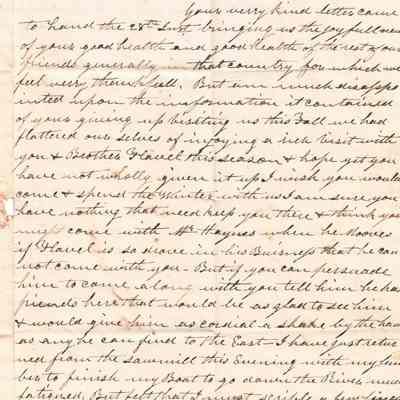 Your very kind letter came
to hand the 28th Inst bringing us the joyfull news
of your good health and good health of the rest of our
friends generally in that country for which we
feel very thankfull. But am much disappo
inted upon the information it contained
of your giving up visiting us this Fall we had
flattered our selves of injoying a rich visit with
you & Brother Flavel this season & hope yet you
have not wholly given it up I wish you would
come & spend the Winter with us I am sure you
have nothing that need keep you there & think you
might come with Mr Haynes when he Mooves
if Flavel is so drove in his Buisness that he can
not come with you - But if you can persuade
him to come along with you tell him he has
friends here that would be as glad to see him
& would give him as cordial a shake by the hand
as any he can find to the East - I have just retur
ned from the Sawmill this Evening with my lum
ber to finish my Boat to go down the River much
fatigued. But felt that I must scrible a few lines